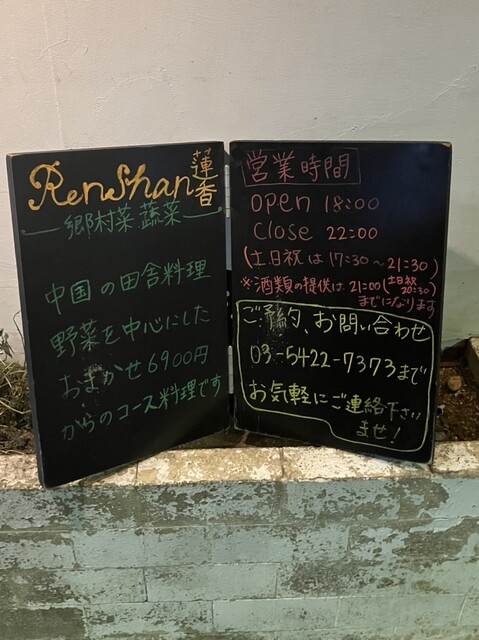 RenShan蓮香
郷村菜 蔬菜
中国の田舎料理
野菜を中心にした
おまかせ6900円
からのコース料理です
営業時間
open 18:00
close 22:00
(土日祝は17:30~21:30)
※酒類の提供は21:00(土日祝20:30)
までになります
ご予約、お問い合わせ
03-5422-7373まで
お気軽にご連絡下さい
ませ!